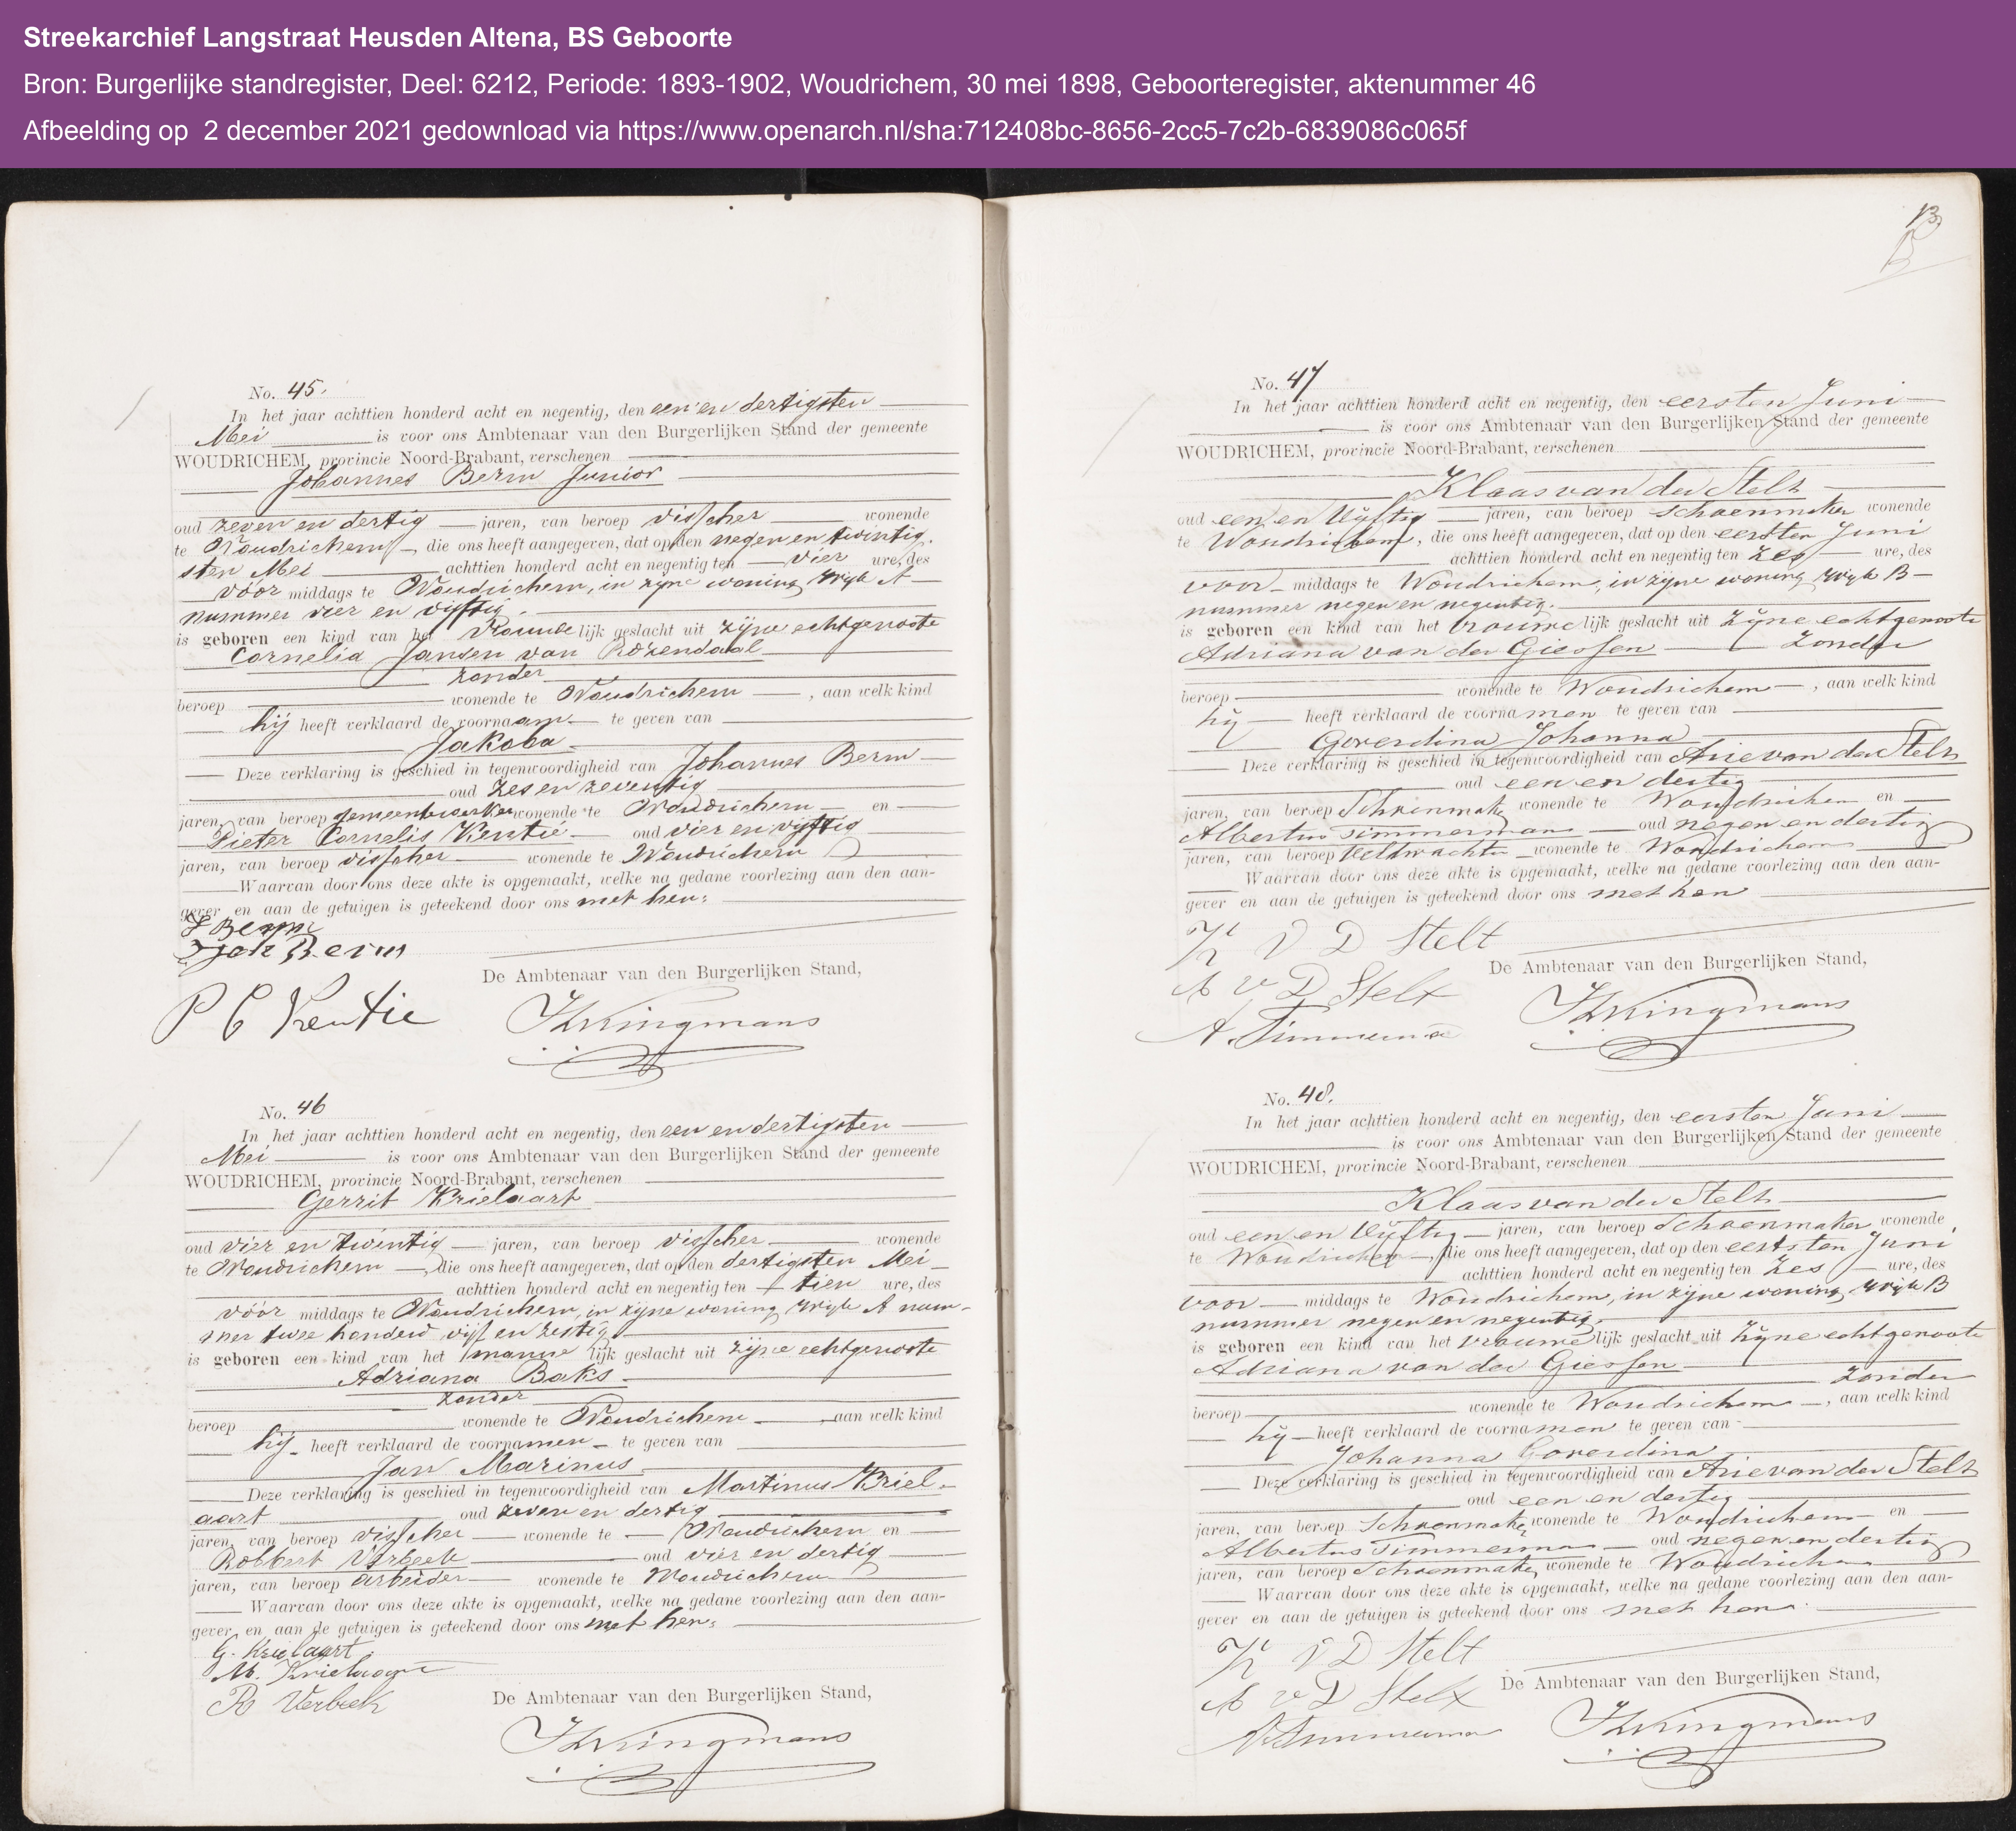 Streekarchief Langstraat Heusden Altena, BS Geboorte
Bron: Burgerlijke standregister, Deel: 6212, Periode: 1893-1902, Woudrichem, 30 mei 1898, Geboorteregister, aktenummer 46
Afbeelding op 2 december 2021 gedownload via https://www.openarch.nl/sha:712408bc-8656-2cc5-7c2b-6839086c065f
No. 45.
In het jaar achttien honderd acht en negentig, den een en dertigsten
Mei is voor ons Ambtenaar van den Burgerlijken Stand der gemeente
WOUDRICHEM, provincie Noord-Brabant, verschenen
Johannes Berm Junior
oud zeven en dertig jaren, van beroep visscher wonende
te Woudrichem, die ons heeft aangegeven, dat op den negen en twintig-
sten Mei achttien honderd acht en negentig ten vier ure, des
vóór middags te Woudrichem, in zijne woning wijk A
nummer vier en vijftig.
is geboren een kind van het Vrouwelijk geslacht uit zijne echtgenoote
Cornelia Jansen van Rozendaal
zonder
beroep wonende te Woudrichem, aan welk kind
hij heeft verklaard de voornaam te geven van
Jakoba
Deze verklaring is geschied in tegenwoordigheid van Johannes Berm
oud zes en zeventig
jaren, van beroep gemeentewerker wonende te Woudrichem en
Pieter Cornelis Kentie oud vier en vijftig
jaren, van beroep visscher wonende te Woudrichem
Waarvan door ons deze akte is opgemaakt, welke na gedane voorlezing aan den aan-
gever en aan de getuigen is geteekend door ons met hen.
J Berm
Joh Berm
P C Kentie
De Ambtenaar van den Burgerlijken Stand,
No. 46
In het jaar achttien honderd acht en negentig, den een en dertigsten
Mei is voor ons Ambtenaar van den Burgerlijken Stand der gemeente
WOUDRICHEM, provincie Noord-Brabant, verschenen
Gerrit Krielaart
oud vier en twintig jaren, van beroep visscher wonende
te Woudrichem, die ons heeft aangegeven, dat op den dertigsten Mei
achttien honderd acht en negentig ten tien ure, des
vóór middags te Woudrichem, in zijne woning wijk A num-
mer twee honderd vijf en zestig
is geboren een kind van het mannelijk geslacht uit zijne echtgenoote
Adriana Baks
zonder
beroep wonende te Woudrichem, aan welk kind
hij heeft verklaard de voornamen te geven van
Jan Marinus
Deze verklaring is geschied in tegenwoordigheid van Martinus Kriel-
aart oud zeven en dertig
jaren, van beroep visscher wonende te Woudrichem en
Robbert Verbeek oud vier en dertig
jaren, van beroep arbeider wonende te Woudrichem
Waarvan door ons deze akte is opgemaakt, welke na gedane voorlezing aan den aan-
gever en aan de getuigen is geteekend door ons met hen.
G. Krielaart
M. Krielaart
R Verbeek
De Ambtenaar van den Burgerlijken Stand,
13
No. 47
In het jaar achttien honderd acht en negentig, den eersten Juni
is voor ons Ambtenaar van den Burgerlijken Stand der gemeente
WOUDRICHEM, provincie Noord-Brabant, verschenen
Klaas van der Stelt
oud een en vijftig jaren, van beroep schoenmaker wonende
te Woudrichem, die ons heeft aangegeven, dat op den eersten Juni
achttien honderd acht en negentig ten zes ure, des
voor middags te Woudrichem, in zijne woning wijk B
nummer negen en negentig.
is geboren een kind van het Vrouwelijk geslacht uit zijne echtgenoote
Adriana van der Giessen zonder
beroep wonende te Woudrichem, aan welk kind
hij heeft verklaard de voornamen te geven van
Goverdina Johanna
Deze verklaring is geschied in tegenwoordigheid van Arie van der Stelt
oud een en dertig
jaren, van beroep Schoenmaker wonende te Woudrichem en
Albertus Timmermans oud negen en dertig
jaren, van beroep Veldwachter wonende te Woudrichem
Waarvan door ons deze akte is opgemaakt, welke na gedane voorlezing aan den aan-
gever en aan de getuigen is geteekend door ons met hen
K V D Stelt
A v D Stelt
A. Timmermans
De Ambtenaar van den Burgerlijken Stand,
No. 48.
In het jaar achttien honderd acht en negentig, den eersten Juni
is voor ons Ambtenaar van den Burgerlijken Stand der gemeente
WOUDRICHEM, provincie Noord-Brabant, verschenen
Klaas van der Stelt
oud een en vijftig jaren, van beroep Schoenmaker wonende
te Woudrichem, die ons heeft aangegeven, dat op den eersten Juni
achttien honderd acht en negentig ten zes ure, des
voor middags te Woudrichem, in zijne woning wijk B
nummer negen en negentig.
is geboren een kind van het Vrouwelijk geslacht uit zijne echtgenoote
Adriana van der Giessen
zonder
beroep wonende te Woudrichem, aan welk kind
hij heeft verklaard de voornamen te geven van
Johanna Goverdina
Deze verklaring is geschied in tegenwoordigheid van Arie van der Stelt
oud een en dertig
jaren, van beroep Schoenmaker wonende te Woudrichem en
Albertus Timmermans oud negen en dertig
jaren, van beroep Schoenmaker wonende te Woudrichem
Waarvan door ons deze akte is opgemaakt, welke na gedane voorlezing aan den aan-
gever en aan de getuigen is geteekend door ons met hen.
K V D Stelt
A v D Stelt
De Ambtenaar van den Burgerlijken Stand,